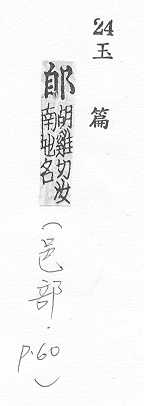 24
玉篇
郋
胡雞切汝
南地名
(邑部·p.60)